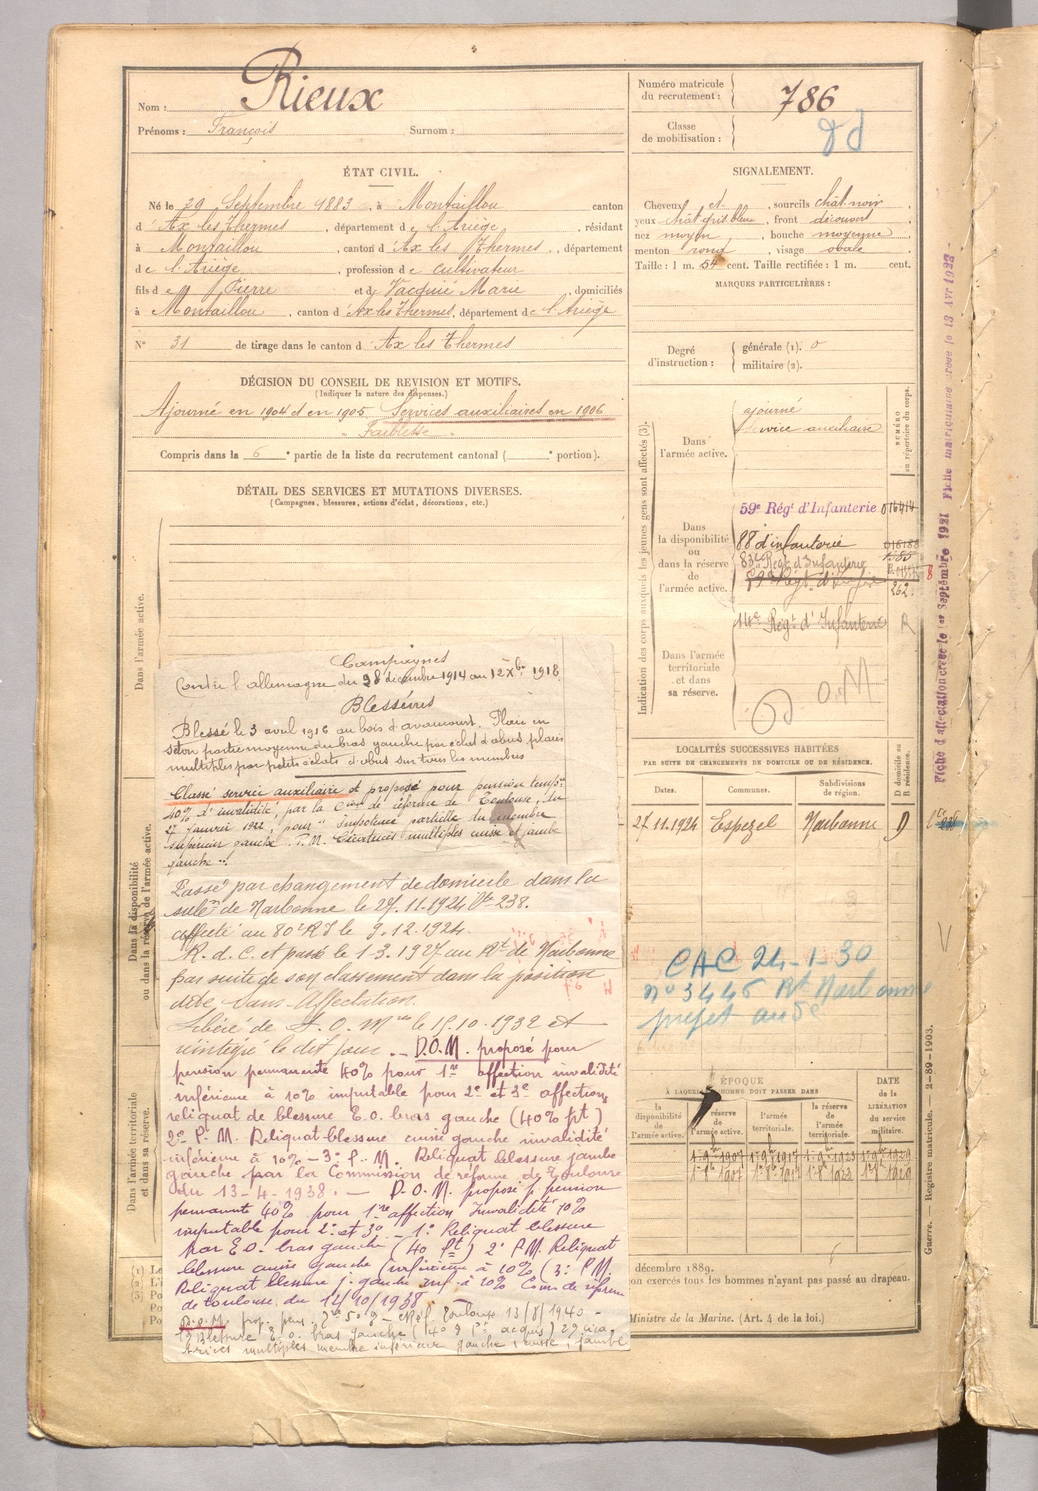 Nom : Rieux
Prénoms : François Surnom :
Numéro matricule du recrutement : 786
Classe de mobilisation :
ÉTAT CIVIL.
Né le 29 Septembre 1883, à Montaillou canton
d' Ax les Thermes, département de l'Ariège, résidant
à Montaillou, canton d' Ax les Thermes, département
de l'Ariège, profession de cultivateur
fils de Pierre et de Jacquié Marie, domiciliés
à Montaillou, canton d' Ax les Thermes, département de l'Ariège
N° 31 de tirage dans le canton d' Ax les Thermes
SIGNALEMENT.
Cheveux et, sourcils chat. noir
yeux chât gris bleu, front découvert
nez moyen, bouche moyenne
menton rond, visage ovale
Taille : 1 m. 54 cent. Taille rectifiée : 1 m. cent.
MARQUES PARTICULIÈRES :
Degré d'instruction : générale (1). 0
militaire (2).
DÉCISION DU CONSEIL DE REVISION ET MOTIFS.
(Indiquer la nature des dispenses.)
Ajourné en 1904 et en 1905. Services auxiliaires en 1906
"Faiblesse".
Compris dans la 6e partie de la liste du recrutement cantonal ( e portion).
DÉTAIL DES SERVICES ET MUTATIONS DIVERSES.
(Campagnes, blessures, actions d'éclat, décorations, etc.)
Dans l'armée active.
Dans la disponibilité ou dans la réserve de l'armée active.
Dans l'armée territoriale et dans sa réserve.
Campagnes
Contre l'allemagne du 28 décembre 1914 au 12 Xbre 1918
Blessures
Blessé le 3 avril 1916 au bois d'avaucourt. Plaie en
séton partie moyenne du bras gauche par éclat d'obus, plaies
multiples par petits éclats d'obus sur tous les membres
Classé service auxiliaire et proposé pour pension temp.re
10% d'invalidité, par la Cion de réforme de Toulouse, du
27 janvier 1922, pour "Impotence partielle du membre
supérieur gauche. P.M. Cicatrices multiples cuisse et jambe
gauche".
Passé par changement de domicile dans la
subon de Narbonne le 27.11.1924 238.
affecté au 80e RI le 9.12.1924.
R. d. C. et passé le 1-3-1927 au Rt de Narbonne
par suite de son classement dans la position
dite Sans-Affectation.
Libéré de S.O.Mres le 15-10-1932 et
réintégré le dit jour. — D.O.M. proposé pour
pension permanente 40% pour 1re affection invalidité
inférieure à 10% imputable pour 2e et 3e affection
reliquat de blessure E.O. bras gauche (40% pt)
2e P.M. Reliquat blessure cuisse gauche invalidité
inférieure à 10% — 3e P.M. Reliquat blessure jambe
gauche par la Commission de réforme de Toulouse
du 13-4-1938. — D.O.M. proposé p. pension
permanente 40% pour 1re affection Invalidité 10%
imputable pour 2e et 3e — 1° Reliquat blessure
par E.O. bras gauche (40 pt) 2° P.M. Reliquat
blessure cuisse gauche (inférieure à 10% (3° P.M.
Reliquat blessure j. gauche inf. à 10% Com. de réforme
de toulouse du 12/10/1938
D.O.M. prop. pens. Toulouse 13/8/1940 -
1° Blessure E.O. bras gauche (40 % pt acquis) 2° cica
trices multiples membre inférieur gauche, cuisse, jambe
Indication des corps auxquels les jeunes gens sont affectés (3).
NUMÉRO au répertoire du corps.
Dans l'armée active. ajourné
service auxiliaire
Dans la disponibilité ou dans la réserve de l'armée active.
59e Régt d'Infanterie 016414
88 d'infanterie 016188
83e Régt d'Infanterie
14e Régt d'Infanterie R
Dans l'armée territoriale et dans sa réserve.
O.M
LOCALITÉS SUCCESSIVES HABITÉES
PAR SUITE DE CHANGEMENTS DE DOMICILE OU DE RÉSIDENCE.
Dates. Communes. Subdivisions de région. D domicile ou R résidence.
27.11.1924 Espezel Narbonne D
CAC 24-1-30
n° 3446 Rt Narbonne
préfet aude
ÉPOQUE
À LAQUELLE L'HOMME DOIT PASSER DANS
DATE de la LIBÉRATION du service militaire.
la disponibilité de l'armée active. la réserve de l'armée active. l'armée territoriale. la réserve de l'armée territoriale.
1-9bre1907 1-9bre1917 1-9bre1923 1-9bre1929
1-8bre1907 1-8bre1917 1-8bre1923 1-8bre1929
décembre 1889.
on exercés tous les hommes n'ayant pas passé au drapeau.
Ministre de la Marine. (Art. 4 de la loi.)
Guerre. — Registre matricule. — 1-89-1903.
Fiche d'affectation créée le 1er Septembre 1921 Fiche matriculaire créée le 13 Avr 1922